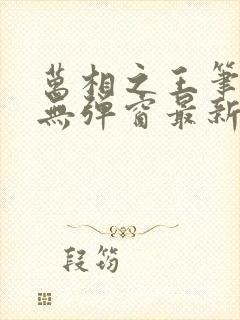 萬相之王筆
無彈窗最新
段筠